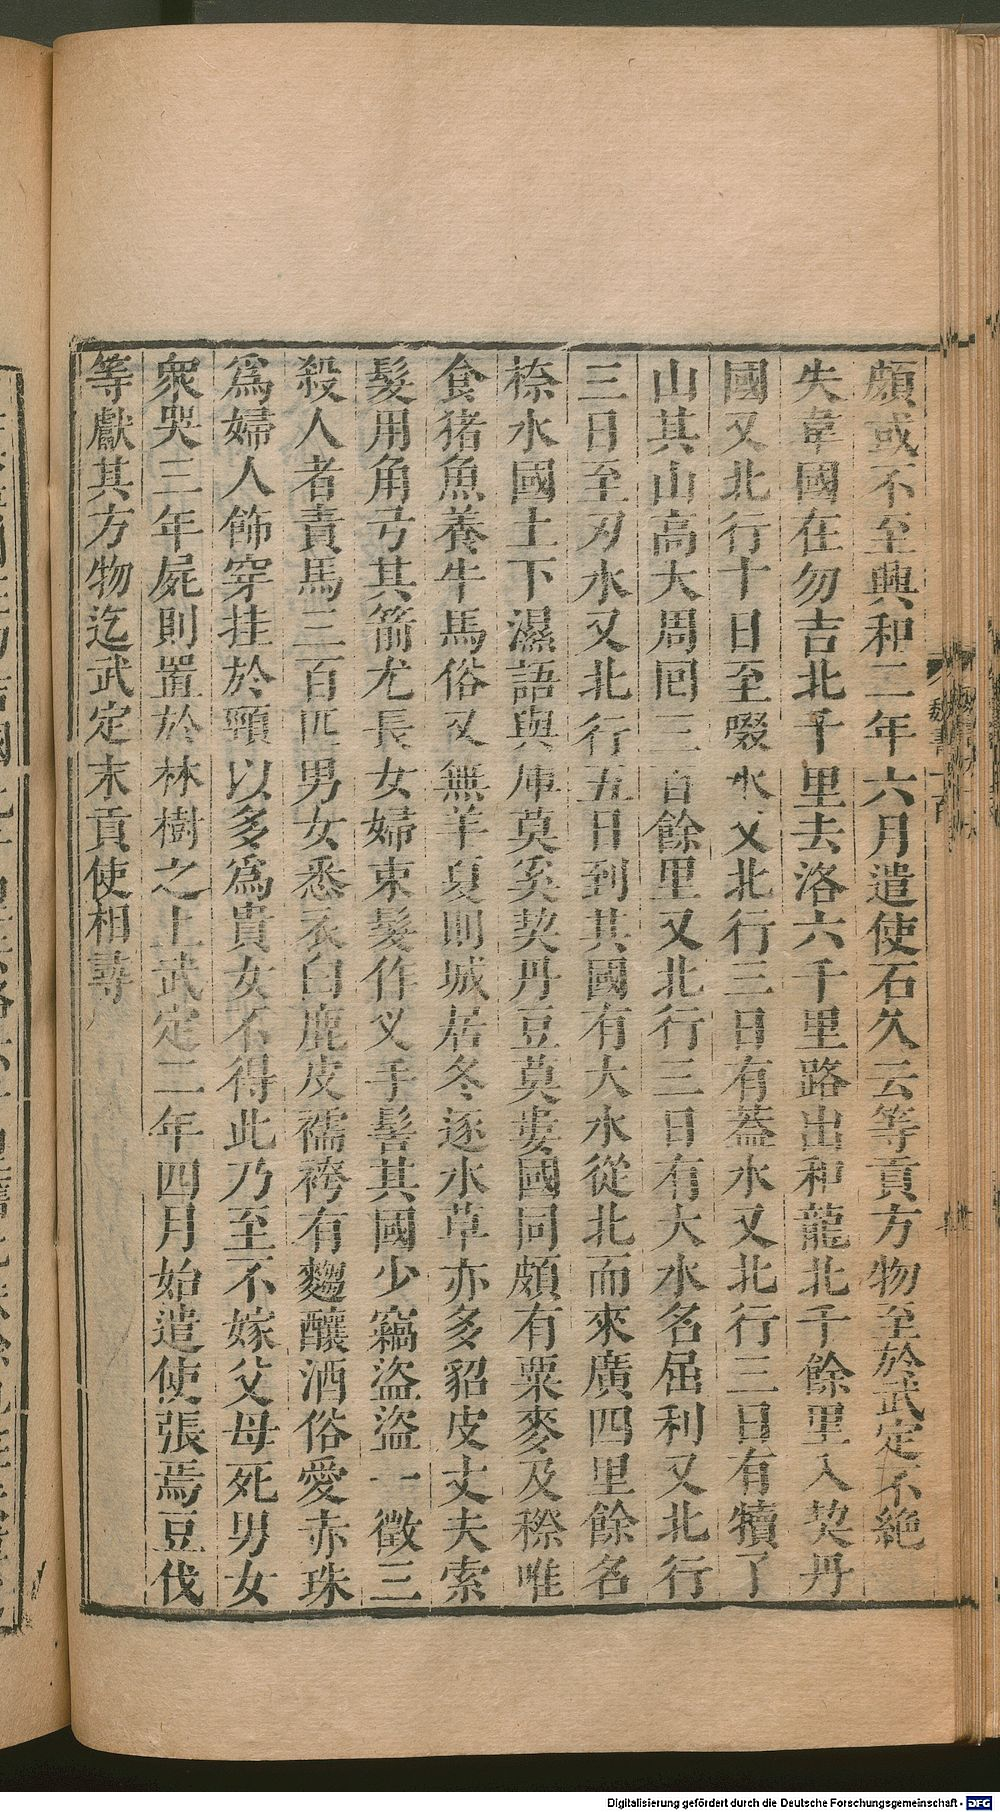 頗或不至興和二年六月遣使石久云等貢方物至於武定不絶
失韋國在勿吉北千里去洛六千里路出和龍北千餘里入契丹
國又北行十日至啜水又北行三日有葢水又北行三日有犢了
山其山高大周囘三百餘里又北行三日有大水名屈利又北行
三日至刃水又北行五日到其國有大水從北而來廣四里餘名
㮈水國土下濕語與庫莫奚契丹豆莫婁國同頗有粟麥及穄唯
食猪魚養牛馬俗又無羊夏則城居冬逐水草亦多貂皮丈夫索
髮用角弓其箭尤長女婦束髮作叉手髻其國少竊盜盜一徵三
殺人者責馬三百匹男女悉衣白鹿皮襦袴有麴釀酒俗愛赤珠
爲婦人飾穿挂於頸以多爲貴女不得此乃至不嫁父母死男女
衆哭三年屍則置於林樹之上武定二年四月始遣使張焉豆伐
等獻其方物迄武定末貢使相尋
魏書一百
Digitalisierung gefördert durch die Deutsche Forschungsgemeinschaft - DFG